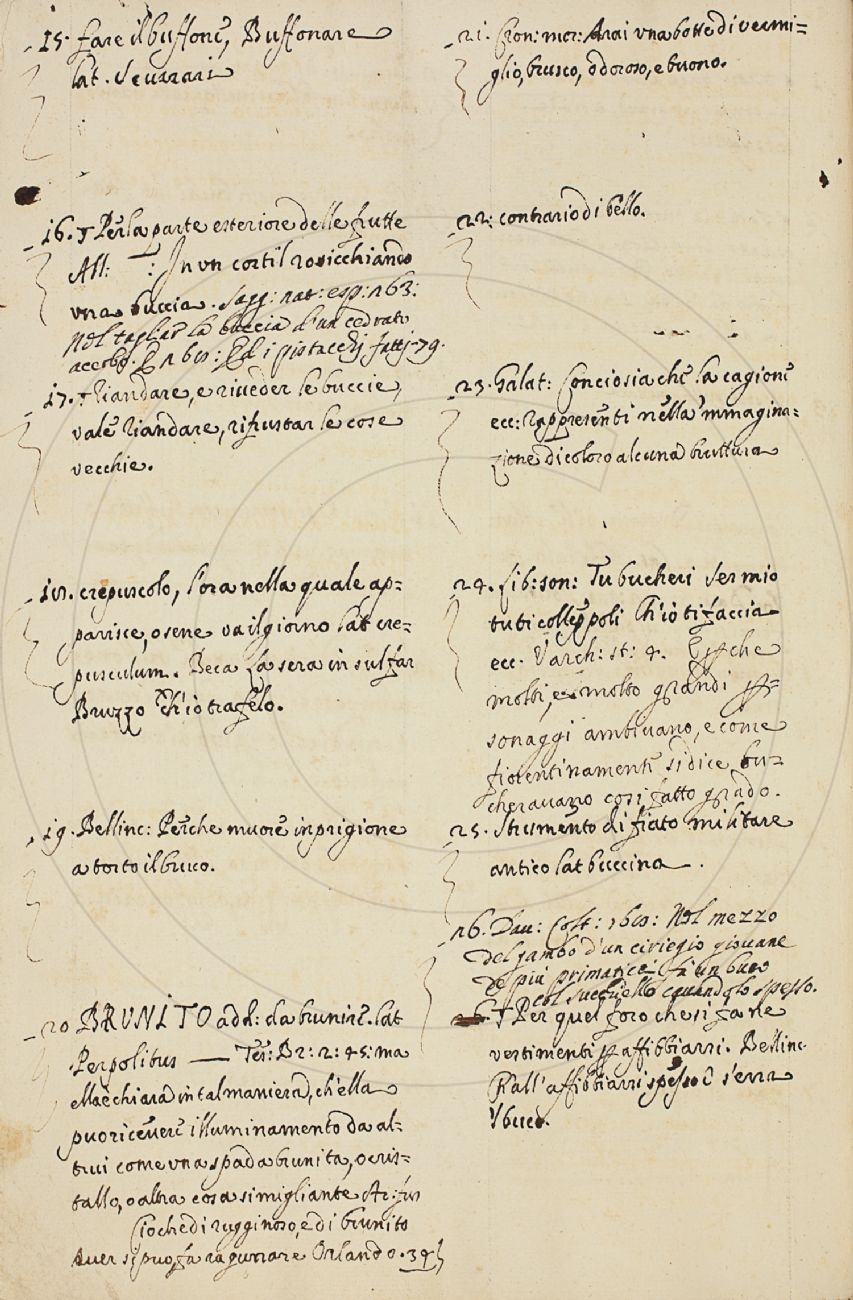 15. Fare il buffone, Buffonare
lat. scurrari
16. † Per la parte esteriore delle frutte
All: : In un cortil rosicchiando
vna buccia. Sagg: nat: esp: 163:
Nel tagliar la buccia d'un cedrato
acerbo. E 160: Ed i pistacchi
17. † Riandare, e riueder le buccie,
vale Riandare, rifrustar le cose
vecchie.
18. crepuscolo, l'ora nella quale ap=
parisce, o sene va il giorno lat cre=
pusculum. Beca La sera in sul far
Bruzzo Ch'io trafelo.
19. Bellinc: Perche muore in prigione
a torto il buco.
20 BRUNITO add: da brunire. lat
Perpolitus — Tes: Br: 2: 45: ma
ella è chiara in tal maniera, ch'ella
puo riceuere illuminamento da al=
trui come vna spada brunita, o cris=
tallo, o altra cosa simigliante Ar: fur
Cioche di rugginoso, e di brunito
Auer si puo, fa ragunare Orlando. 34
21. Cron: mor: Arai vna botte di vermi=
glio, brusco, odoroso, e buono.
22: contrario di bello.
23. Galat: Conciosia che la cagione
ecc: rappresenti nella 'mmagina=
zione di coloro alcuna bruttura
24. Lib: son: Tu bucheri Ser mio
tu ti colleppoli Ch'io ti faccia
ecc. Varch: st: 4. che
molti, e molto grandi per=
sonaggi ambivano, e come
fiorentinamente si dice, bu=
cheravano cosi fatto grado.
25. Strumento di fiato militare
antico lat buccina.
26. Dau: Colt: 160: Nel mezzo
del gambo d'un ciriegio giouane
di più primatice: fà un buco
col succhiello quando lo spesso.
† Per quel foro che si fa ne
vestimenti per affibbiarsi. Bellinc
K all'affibbiarsi spesso e s'erra
'l buco.